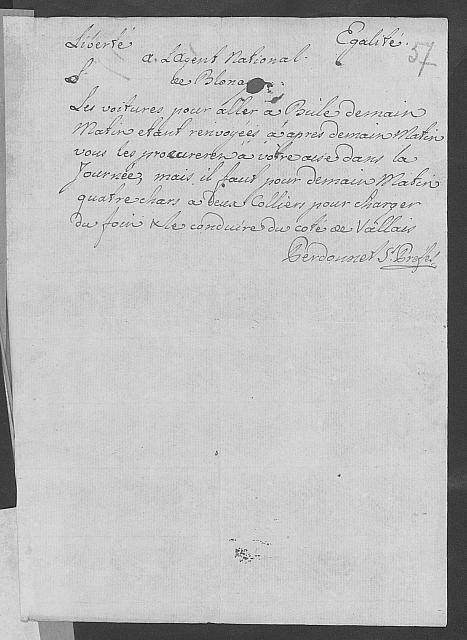 Liberté Egalité. 57
a L'agent National.
de Blonay
Les voitures pour aller à Bule demain
Matin etant renvoyées à après demain Matin
vous les procurerer à vôtre aise dans la
Journée, mais il faut pour demain Matin
quatre chars à deux Colliers pour charger
du foin & le conduire du coté de Vallais
Perdonnet Ss. Prefet